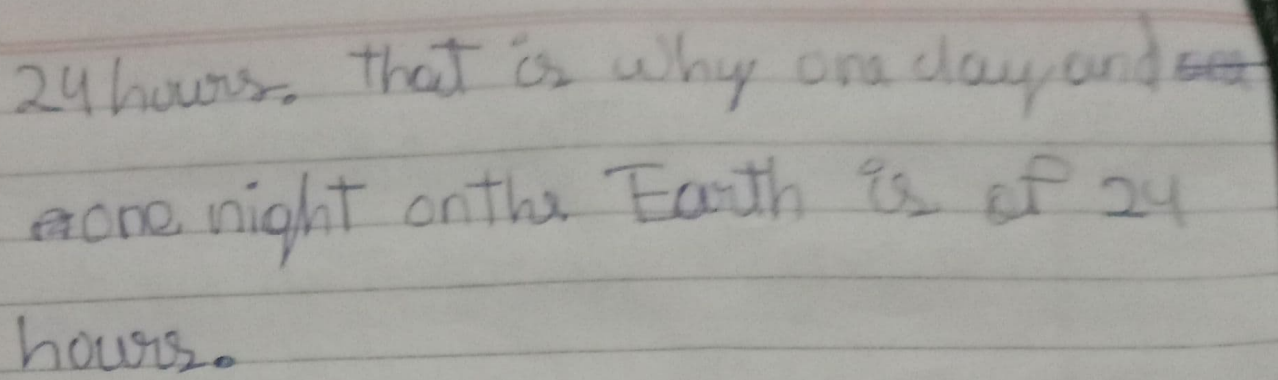 24 hours. that is why one day and
one night on the Earth is of 24
hours.